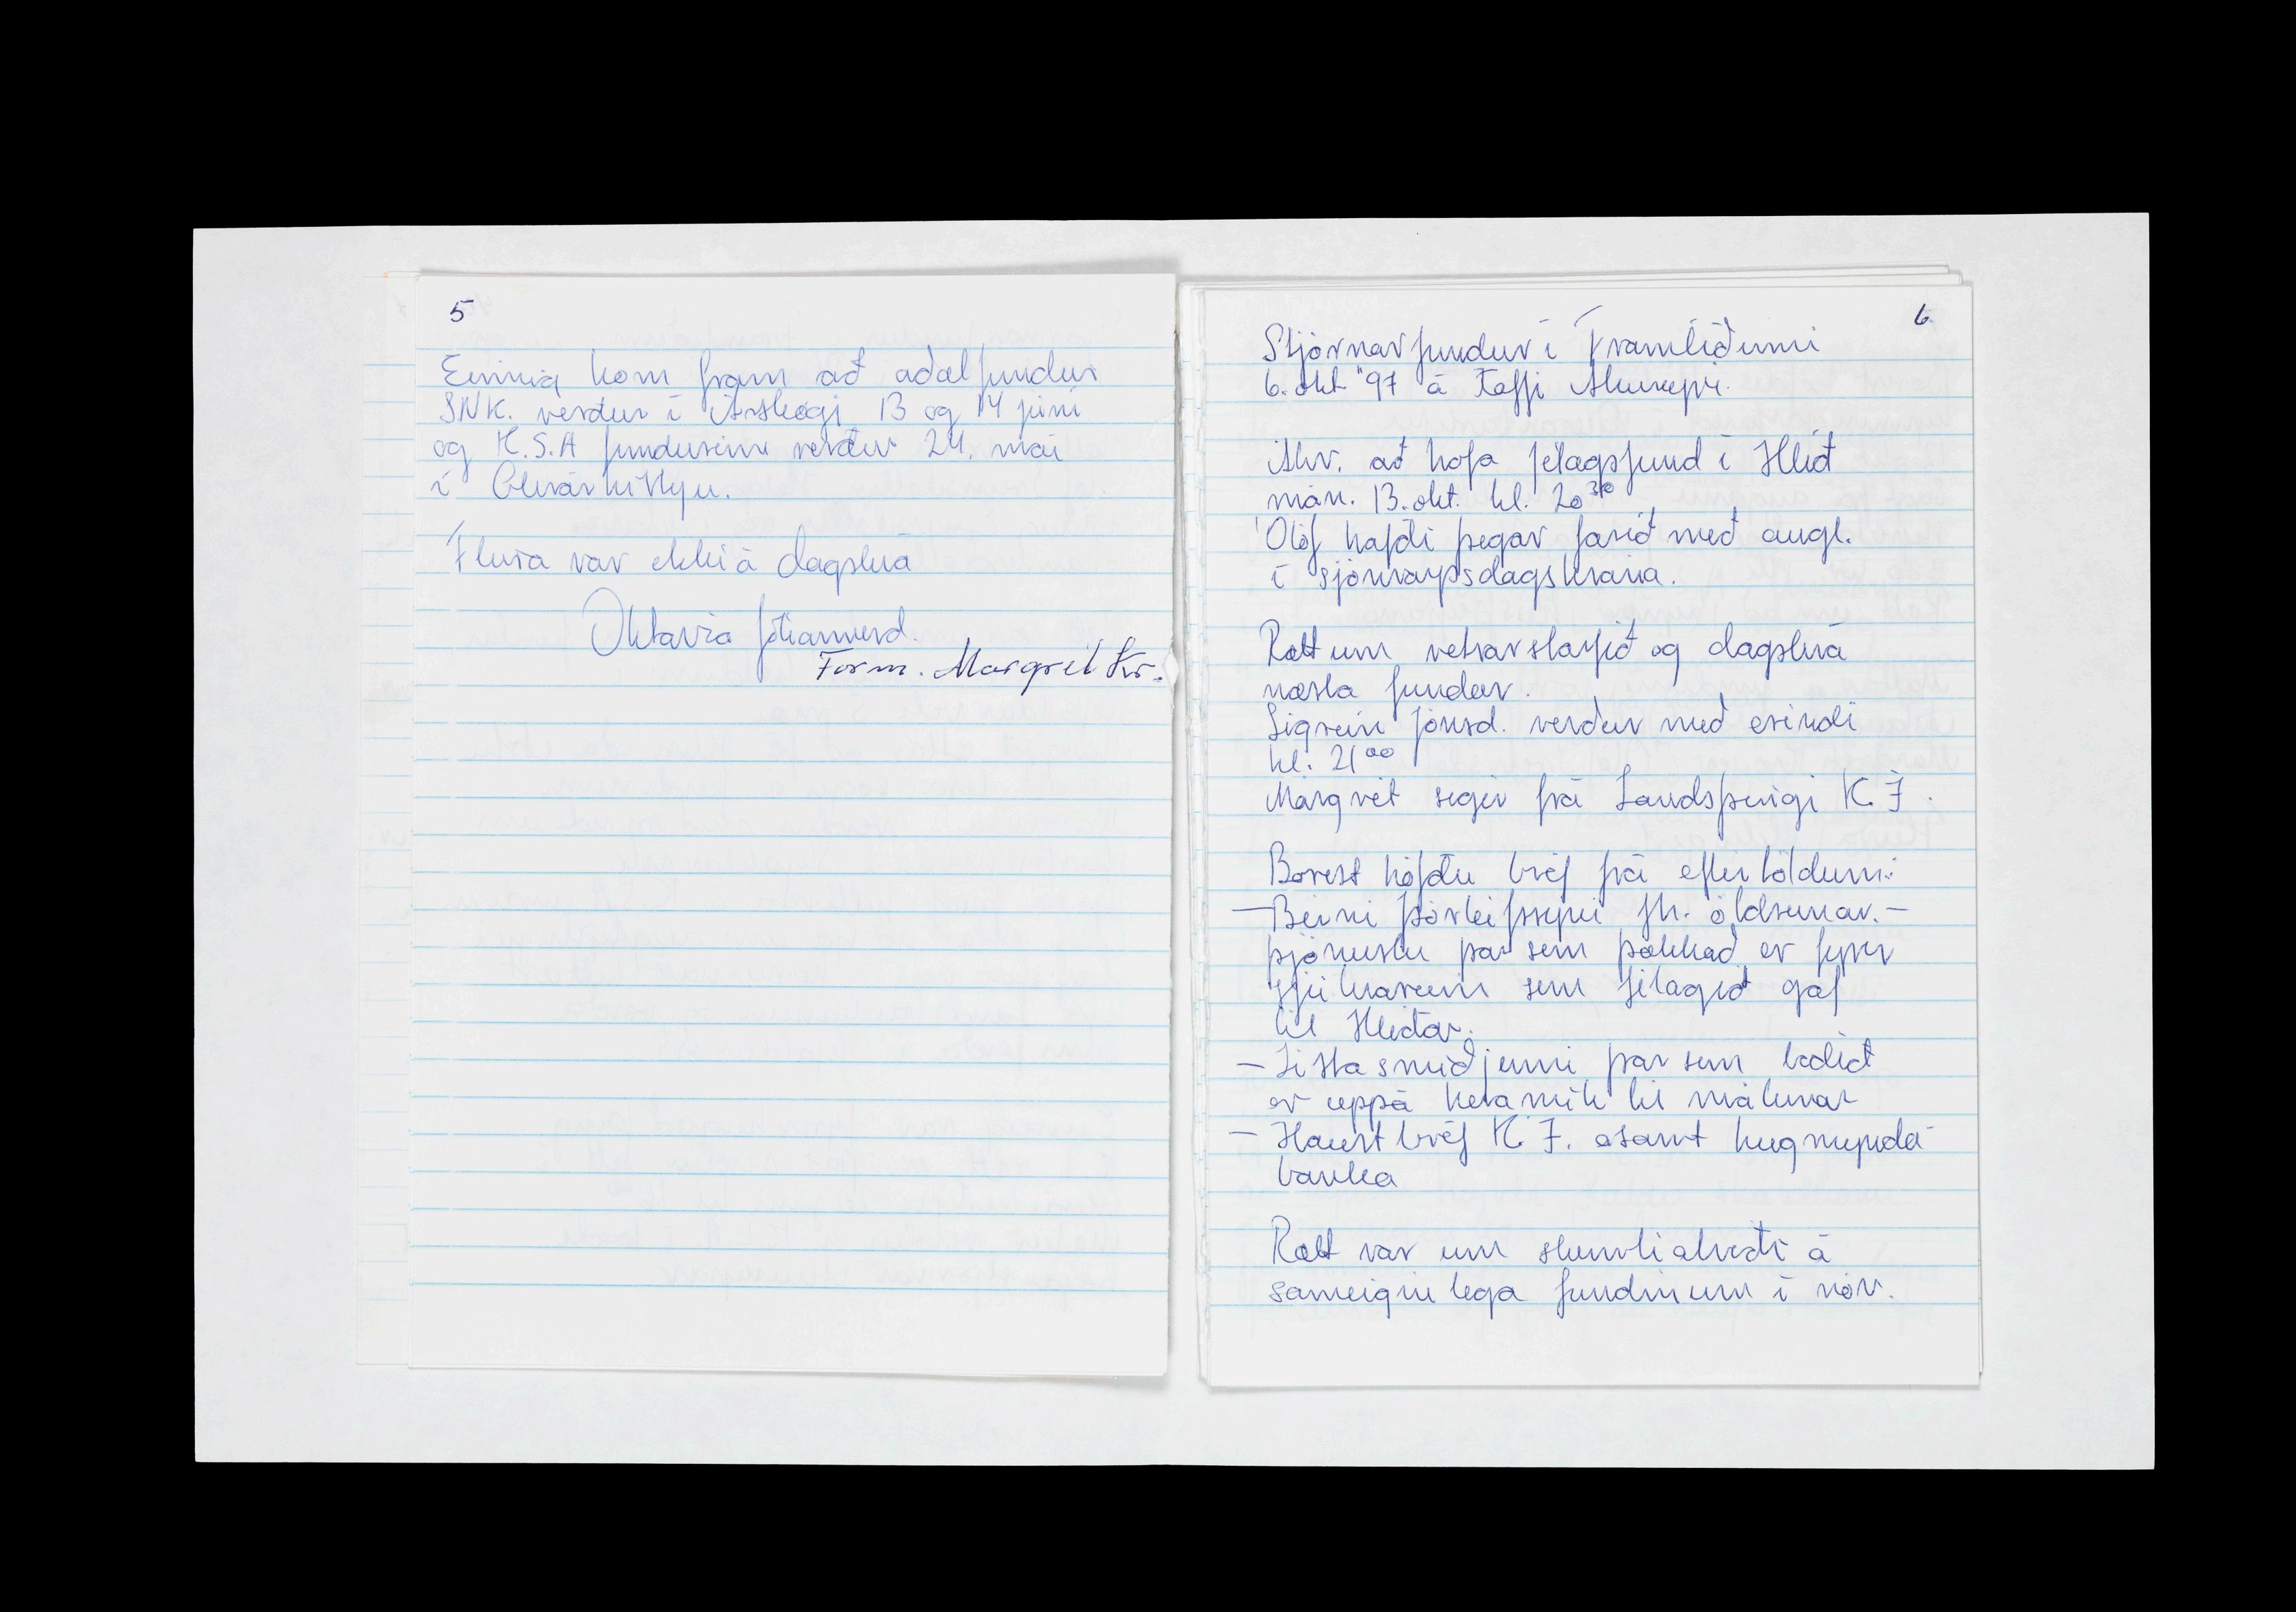 5
Einnig kom fram að aðalfundur
SNK. verður í Árskógi 13 og 14 júní
og K.S.A fundurinn verður 24. maí
í Glerárkirkju.
Fleira var ekki á dagskrá
Oktavía Jóhannesd.
Form. Margrét Kr.
6
Stjórnarfundur í Framtíðinni
6. okt "97 á Kaffi Akureyri.
Ákv. að hafa félagsfund í Hlíð
mán. 13. okt. kl. 20³⁰
Ólöf hafði þegar farið með augl.
í sjónvarpsdagskrána.
Rætt um vetrarstarfið og dagskrá
næsta fundar.
Sigrún Jónsd. verður með erindi
kl. 21⁰⁰
Margrét segir frá Landsþingi K.Í.
Borist höfðu bréf frá eftirtöldum:
– Birni Þórleifssyni fh. öldrunar.–
þjónustu þar sem þakkað er fyrir
sem félagið gaf
til Hlíðar.
– Listasmiðjunni þar sem boðið
er uppá keramik til málunar
– Haustbréf K.Í. ásamt hugmynda
banka
Rætt var um skemmtiatriði á
sameiginlega fundinum í nóv.